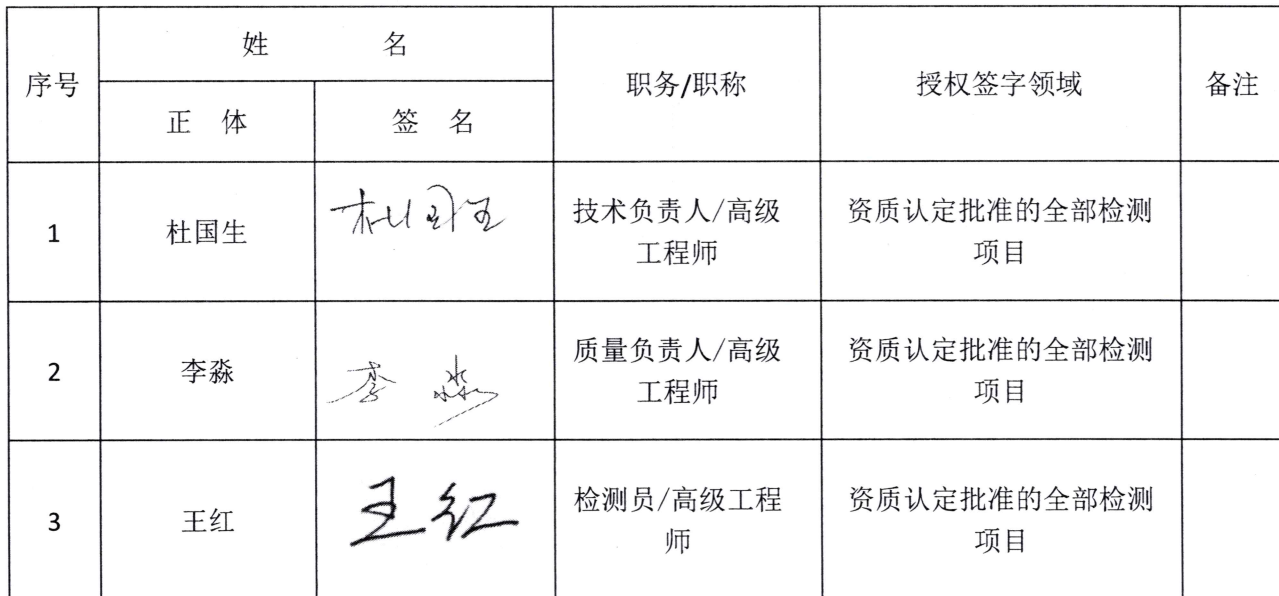 序号
姓 名
正 体
签 名
职务/职称
授权签字领域
备注
1
杜国生
杜国生
技术负责人/高级
工程师
资质认定批准的全部检测
项目
2
李淼
李淼
质量负责人/高级
工程师
资质认定批准的全部检测
项目
3
王红
王红
检测员/高级工程
师
资质认定批准的全部检测
项目